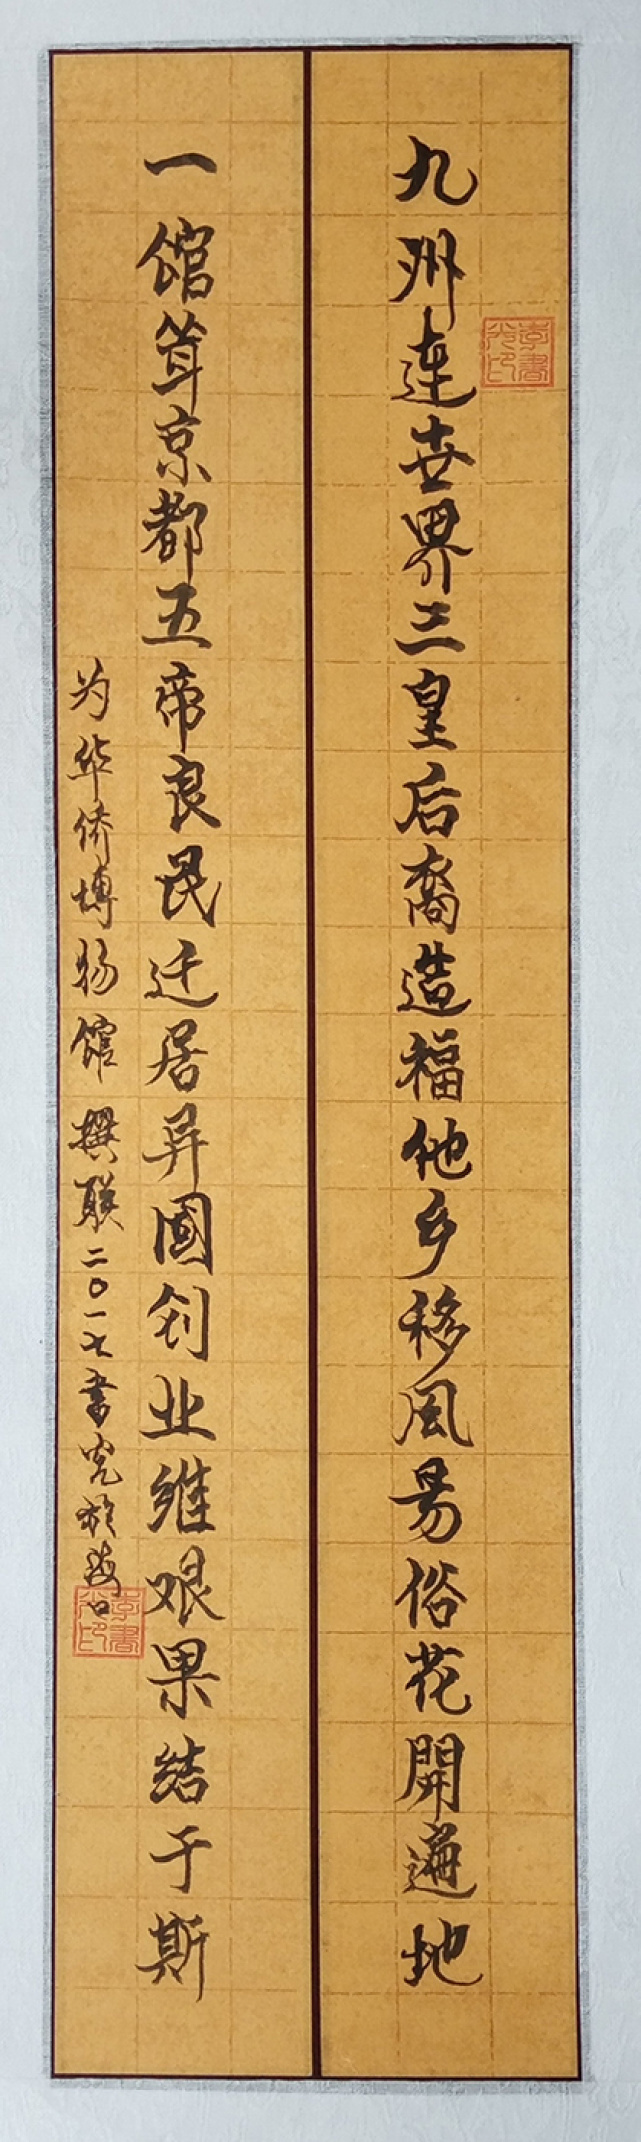 九州连世界三皇后裔造福他乡移风易俗花開遍地
一馆耸京都五帝良民迁居异國创业维艰果结于斯
为华侨博物馆撰联二〇一七书完於海口